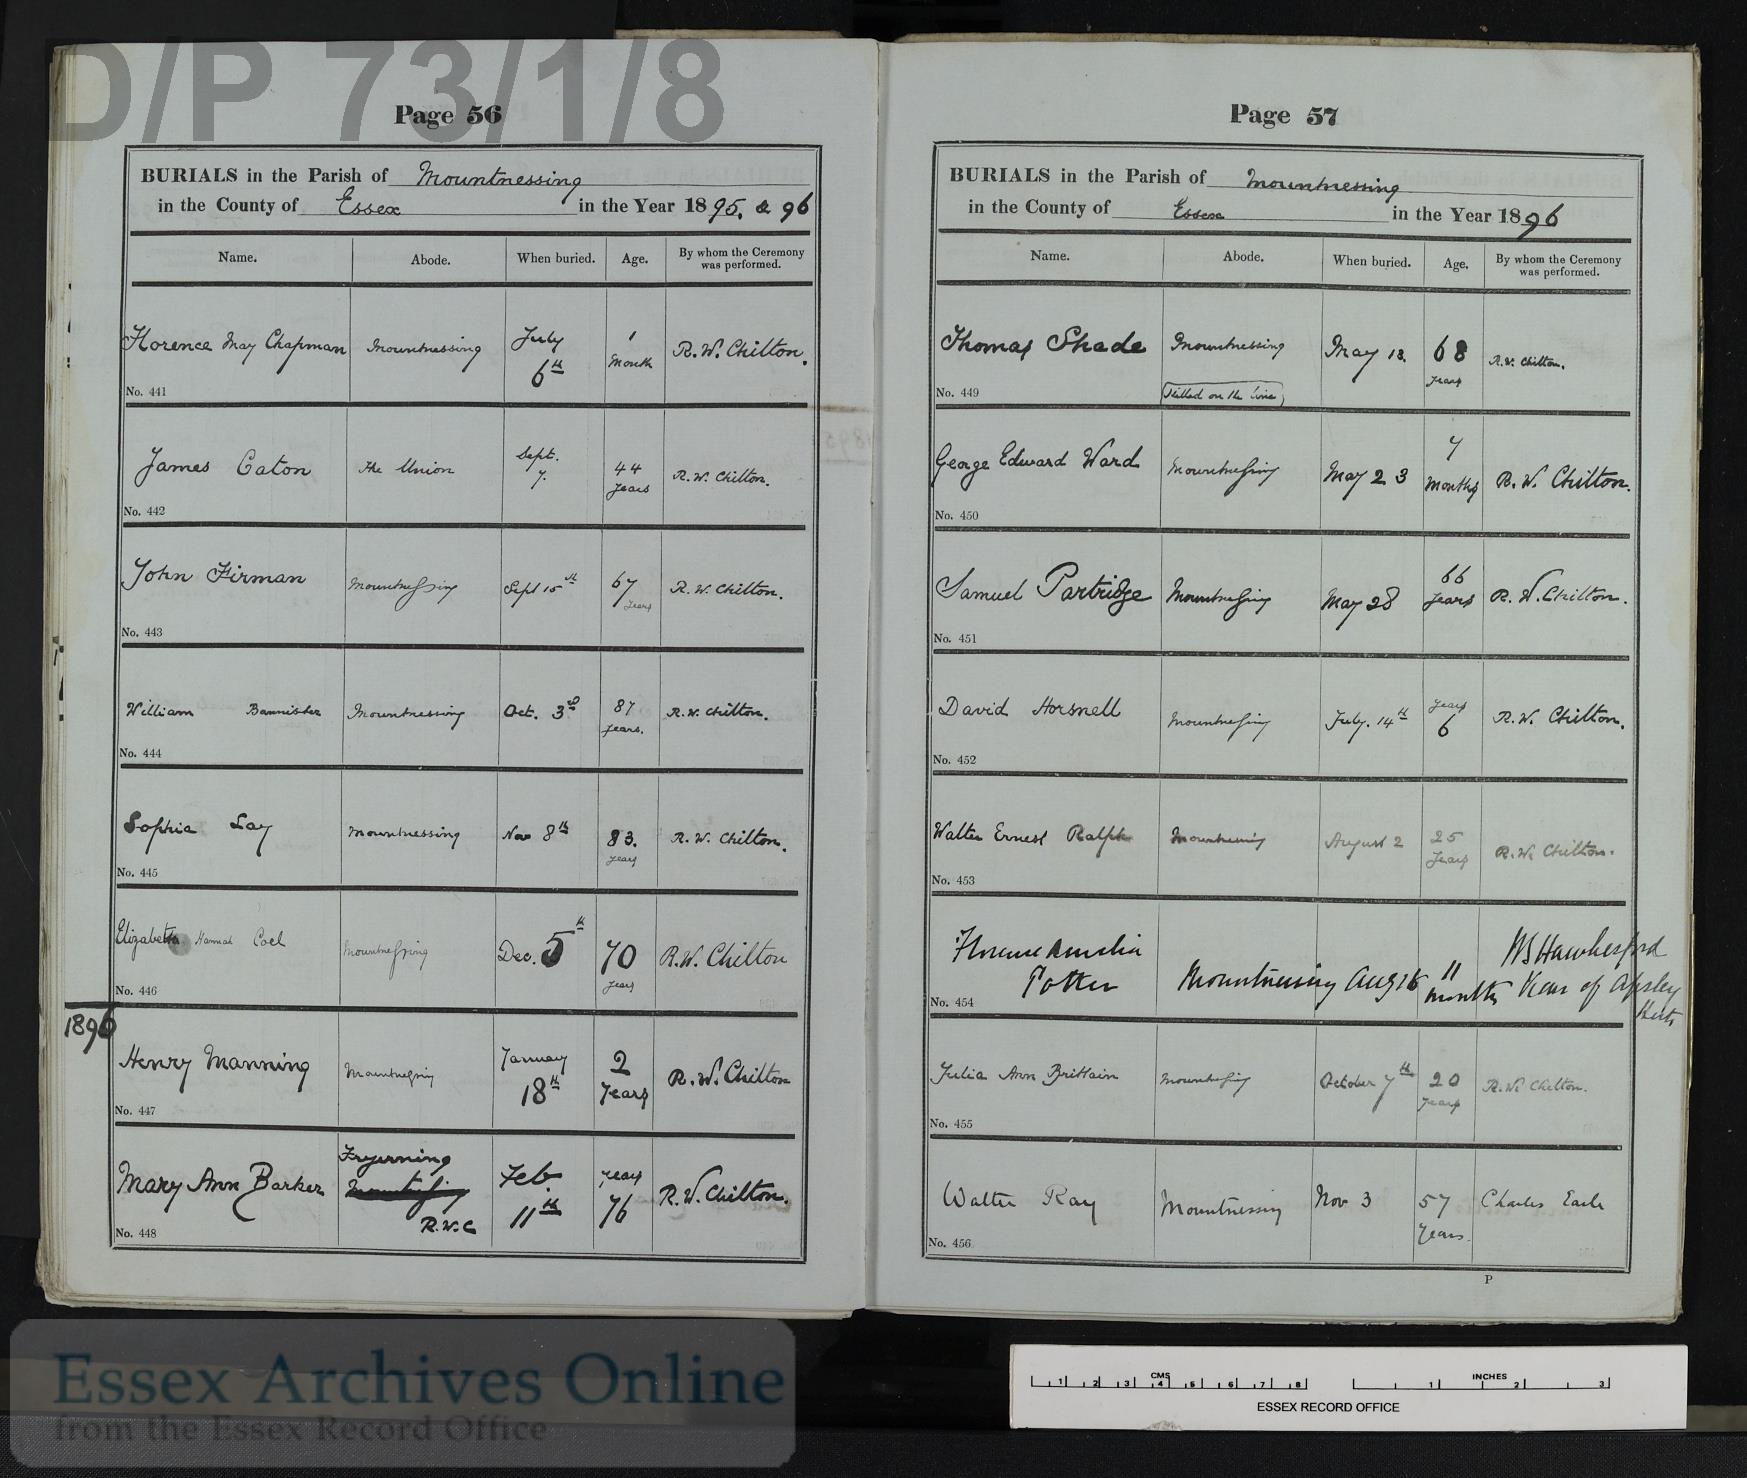 D/P 73/1/8
Page 56
BURIALS in the Parish of Mountnessing
in the County of Essex in the Year 1895. & 96
Name. Abode. When buried. Age. By whom the Ceremony was performed.
Florence May Chapman Mountnessing July 6th 1 Month R.W. Chilton.
No. 441
James Caton The Union Sept. 7. 44 years R.W. Chilton.
No. 442
John Firman Mountnessing Sept 15th 67 years R.W. Chilton.
No. 443
William Bannister Mountnessing Oct. 3rd 87 years. R.W. Chilton.
No. 444
Sophia Lay Mountnessing Nov 8th 83. years R.W. Chilton.
No. 445
Elizabeth Hannah Coel Mountnessing Dec. 5th 70 years R.W. Chilton
No. 446
1896
Henry Manning Mountnessing January 18th 2 Years R.W. Chilton
No. 447
Mary Ann Barker Fryerning Mountnessing R.W.C Feb. 11th years 76 R.W. Chilton.
No. 448
Page 57
BURIALS in the Parish of Mountnessing
in the County of Essex in the Year 1896
Name. Abode. When buried. Age. By whom the Ceremony was performed.
Thomas Shade Mountnessing May 13. 68 years R.W. Chilton.
No. 449 Killed on the line
George Edward Ward Mountnessing May 23 7 months R.W. Chilton.
No. 450
Samuel Partridge Mountnessing May 28 66 years R.W. Chilton.
No. 451
David Horsnell Mountnessing July. 14th years 6 R.W. Chilton.
No. 452
Walter Ernest Ralph Mountnessing August 2 25 years R.W. Chilton.
No. 453
Florence Amelia Potter Mountnessing Aug 16 11 months WS Hawkesford Vicar of Apsley Herts
No. 454
Julia Ann Brittain Mountnessing October 7th 20 years R.W. Chilton.
No. 455
Walter Ray Mountnessing Nov 3 57 years. Charles Earle
No. 456
P
Essex Archives Online
from the Essex Record Office
CMS
1 2 3 4 5 6 7 8
INCHES
1 2 3
ESSEX RECORD OFFICE